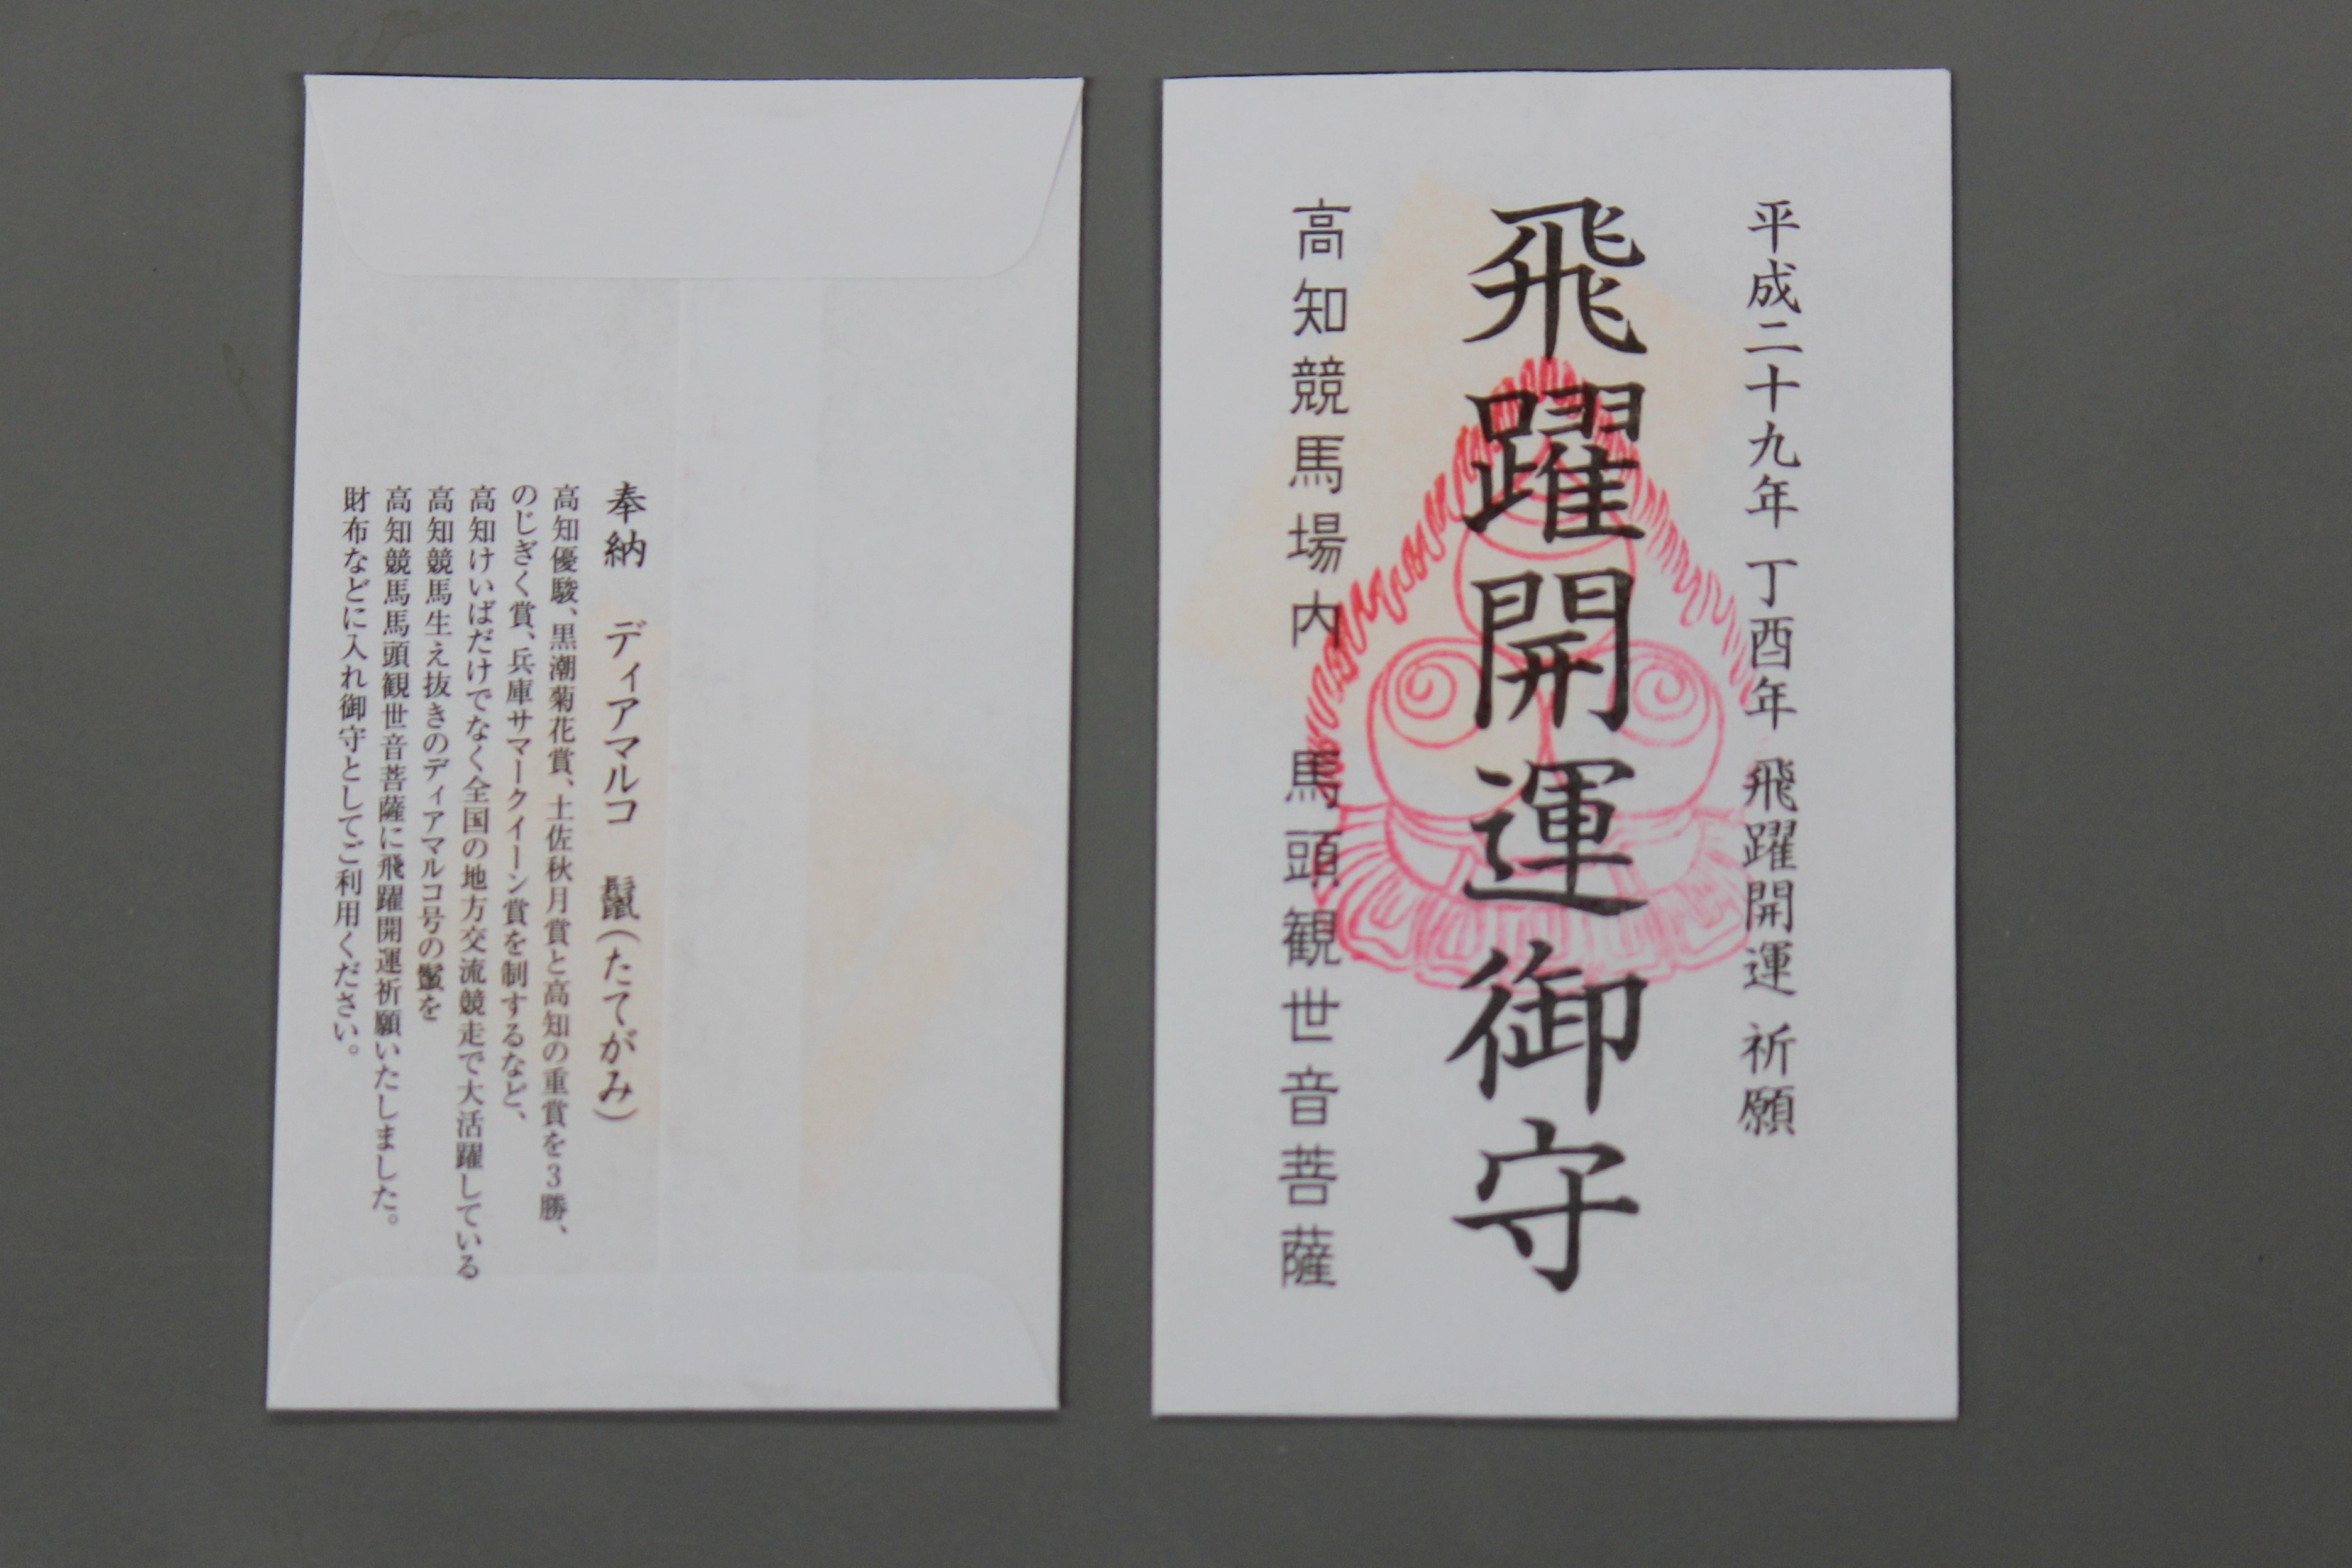 平成二十九年 丁酉年 飛躍開運 祈願
飛躍開運御守
高知競馬場内 馬頭観世音菩薩
奉納 ディアマルコ 鬣(たてがみ)
高知優駿、黒潮菊花賞、土佐秋月賞と高知の重賞を3勝、
のじぎく賞、兵庫サマークイーン賞を制するなど、
高知けいばだけでなく全国の地方交流競走で大活躍している
高知競馬生え抜きのディアマルコ号の鬣を
高知競馬馬頭観世音菩薩に飛躍開運祈願いたしました。
財布などに入れ御守としてご利用ください。